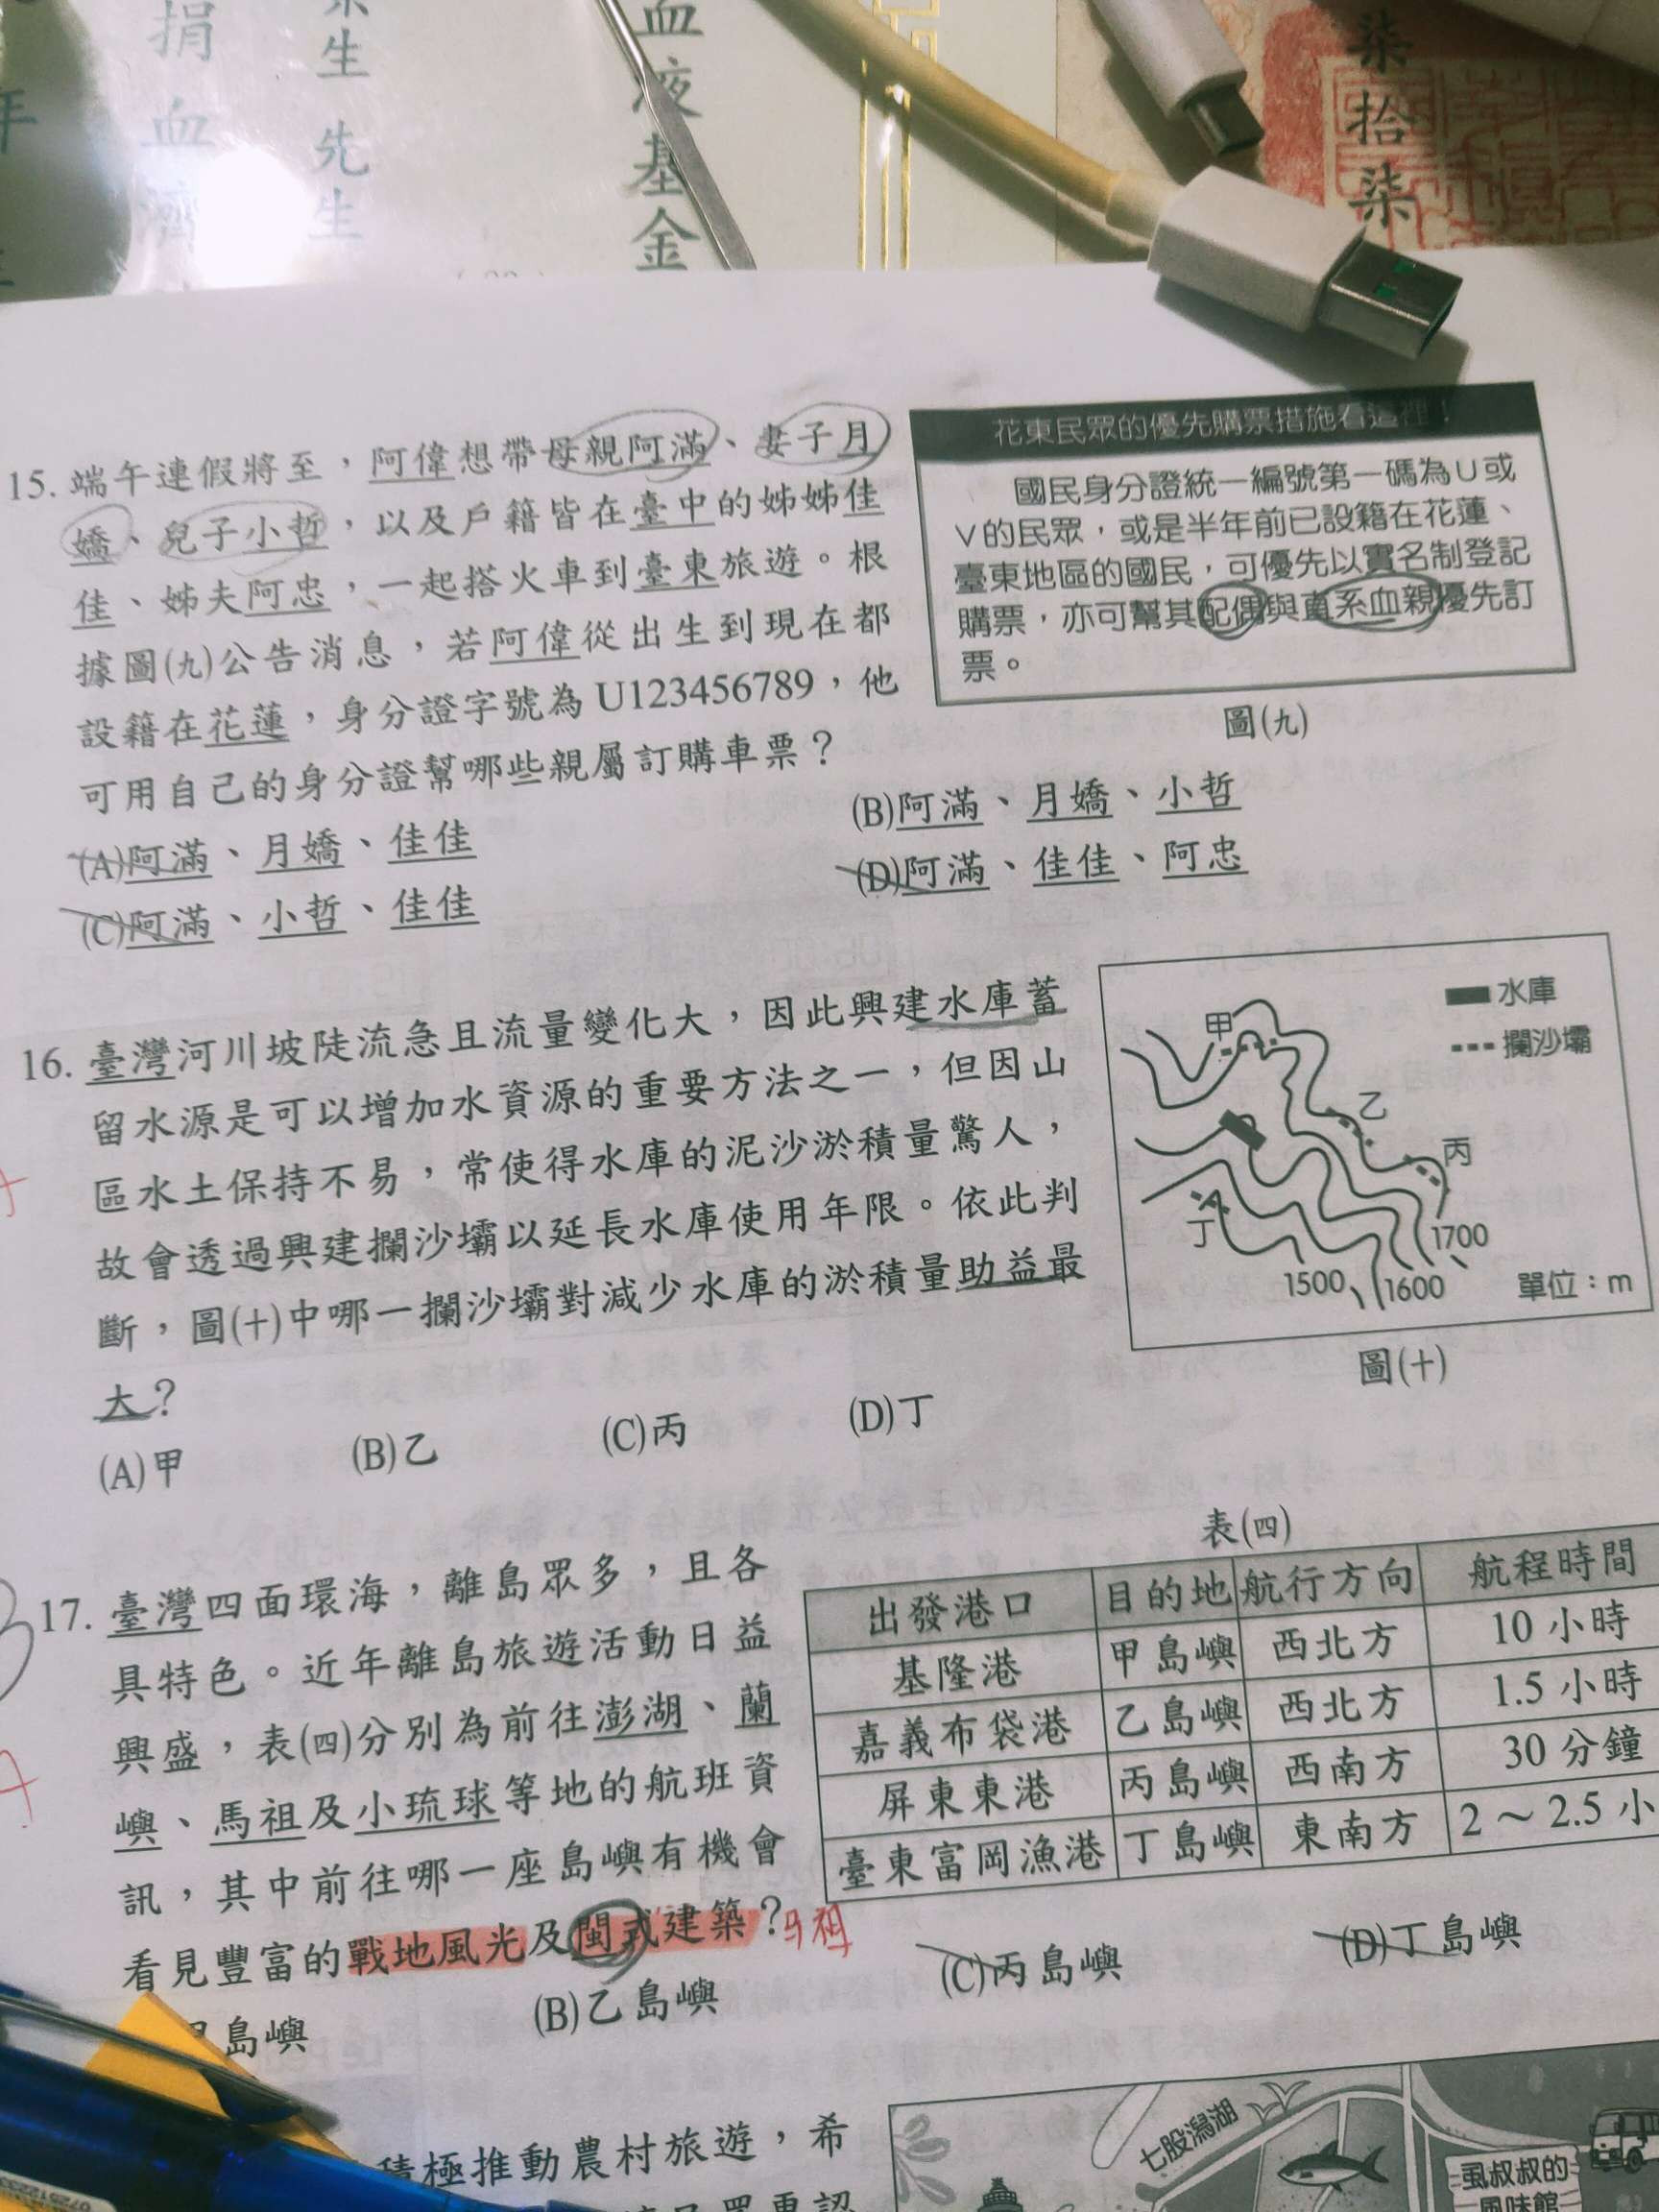 捐血
生先生
血液基金
柒拾柒
15. 端午連假將至，阿偉想帶母親阿滿、妻子月
嬌、兒子小哲，以及戶籍皆在臺中的姊姊佳
佳、姊夫阿忠，一起搭火車到臺東旅遊。根
據圖(九)公告消息，若阿偉從出生到現在都
設籍在花蓮，身分證字號為 U123456789，他
可用自己的身分證幫哪些親屬訂購車票？
(A)阿滿、月嬌、佳佳
(B)阿滿、月嬌、小哲
(C)阿滿、小哲、佳佳
(D)阿滿、佳佳、阿忠
花東民眾的優先購票措施看這裡！
國民身分證統一編號第一碼為U或
V的民眾，或是半年前已設籍在花蓮、
臺東地區的國民，可優先以實名制登記
購票，亦可幫其配偶與直系血親優先訂
票。
圖(九)
16. 臺灣河川坡陡流急且流量變化大，因此興建水庫蓄
留水源是可以增加水資源的重要方法之一，但因山
區水土保持不易，常使得水庫的泥沙淤積量驚人，
故會透過興建攔沙壩以延長水庫使用年限。依此判
斷，圖(十)中哪一攔沙壩對減少水庫的淤積量助益最
大？
(A)甲 (B)乙 (C)丙 (D)丁
水庫
攔沙壩
甲
乙
丙
丁
1700
1500 1600 單位：m
圖(十)
17. 臺灣四面環海，離島眾多，且各
具特色。近年離島旅遊活動日益
興盛，表(四)分別為前往澎湖、蘭
嶼、馬祖及小琉球等地的航班資
訊，其中前往哪一座島嶼有機會
看見豐富的戰地風光及閩式建築？
島嶼 (B)乙島嶼 (C)丙島嶼 (D)丁島嶼
表(四)
出發港口 目的地 航行方向 航程時間
基隆港 甲島嶼 西北方 10 小時
嘉義布袋港 乙島嶼 西北方 1.5 小時
屏東東港 丙島嶼 西南方 30 分鐘
臺東富岡漁港 丁島嶼 東南方 2～2.5 小
積極推動農村旅遊，希
七股潟湖
虱叔叔的
風味館